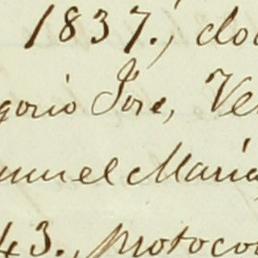 1837., doc
gorio José, Ve
nuel María
43., Protoco